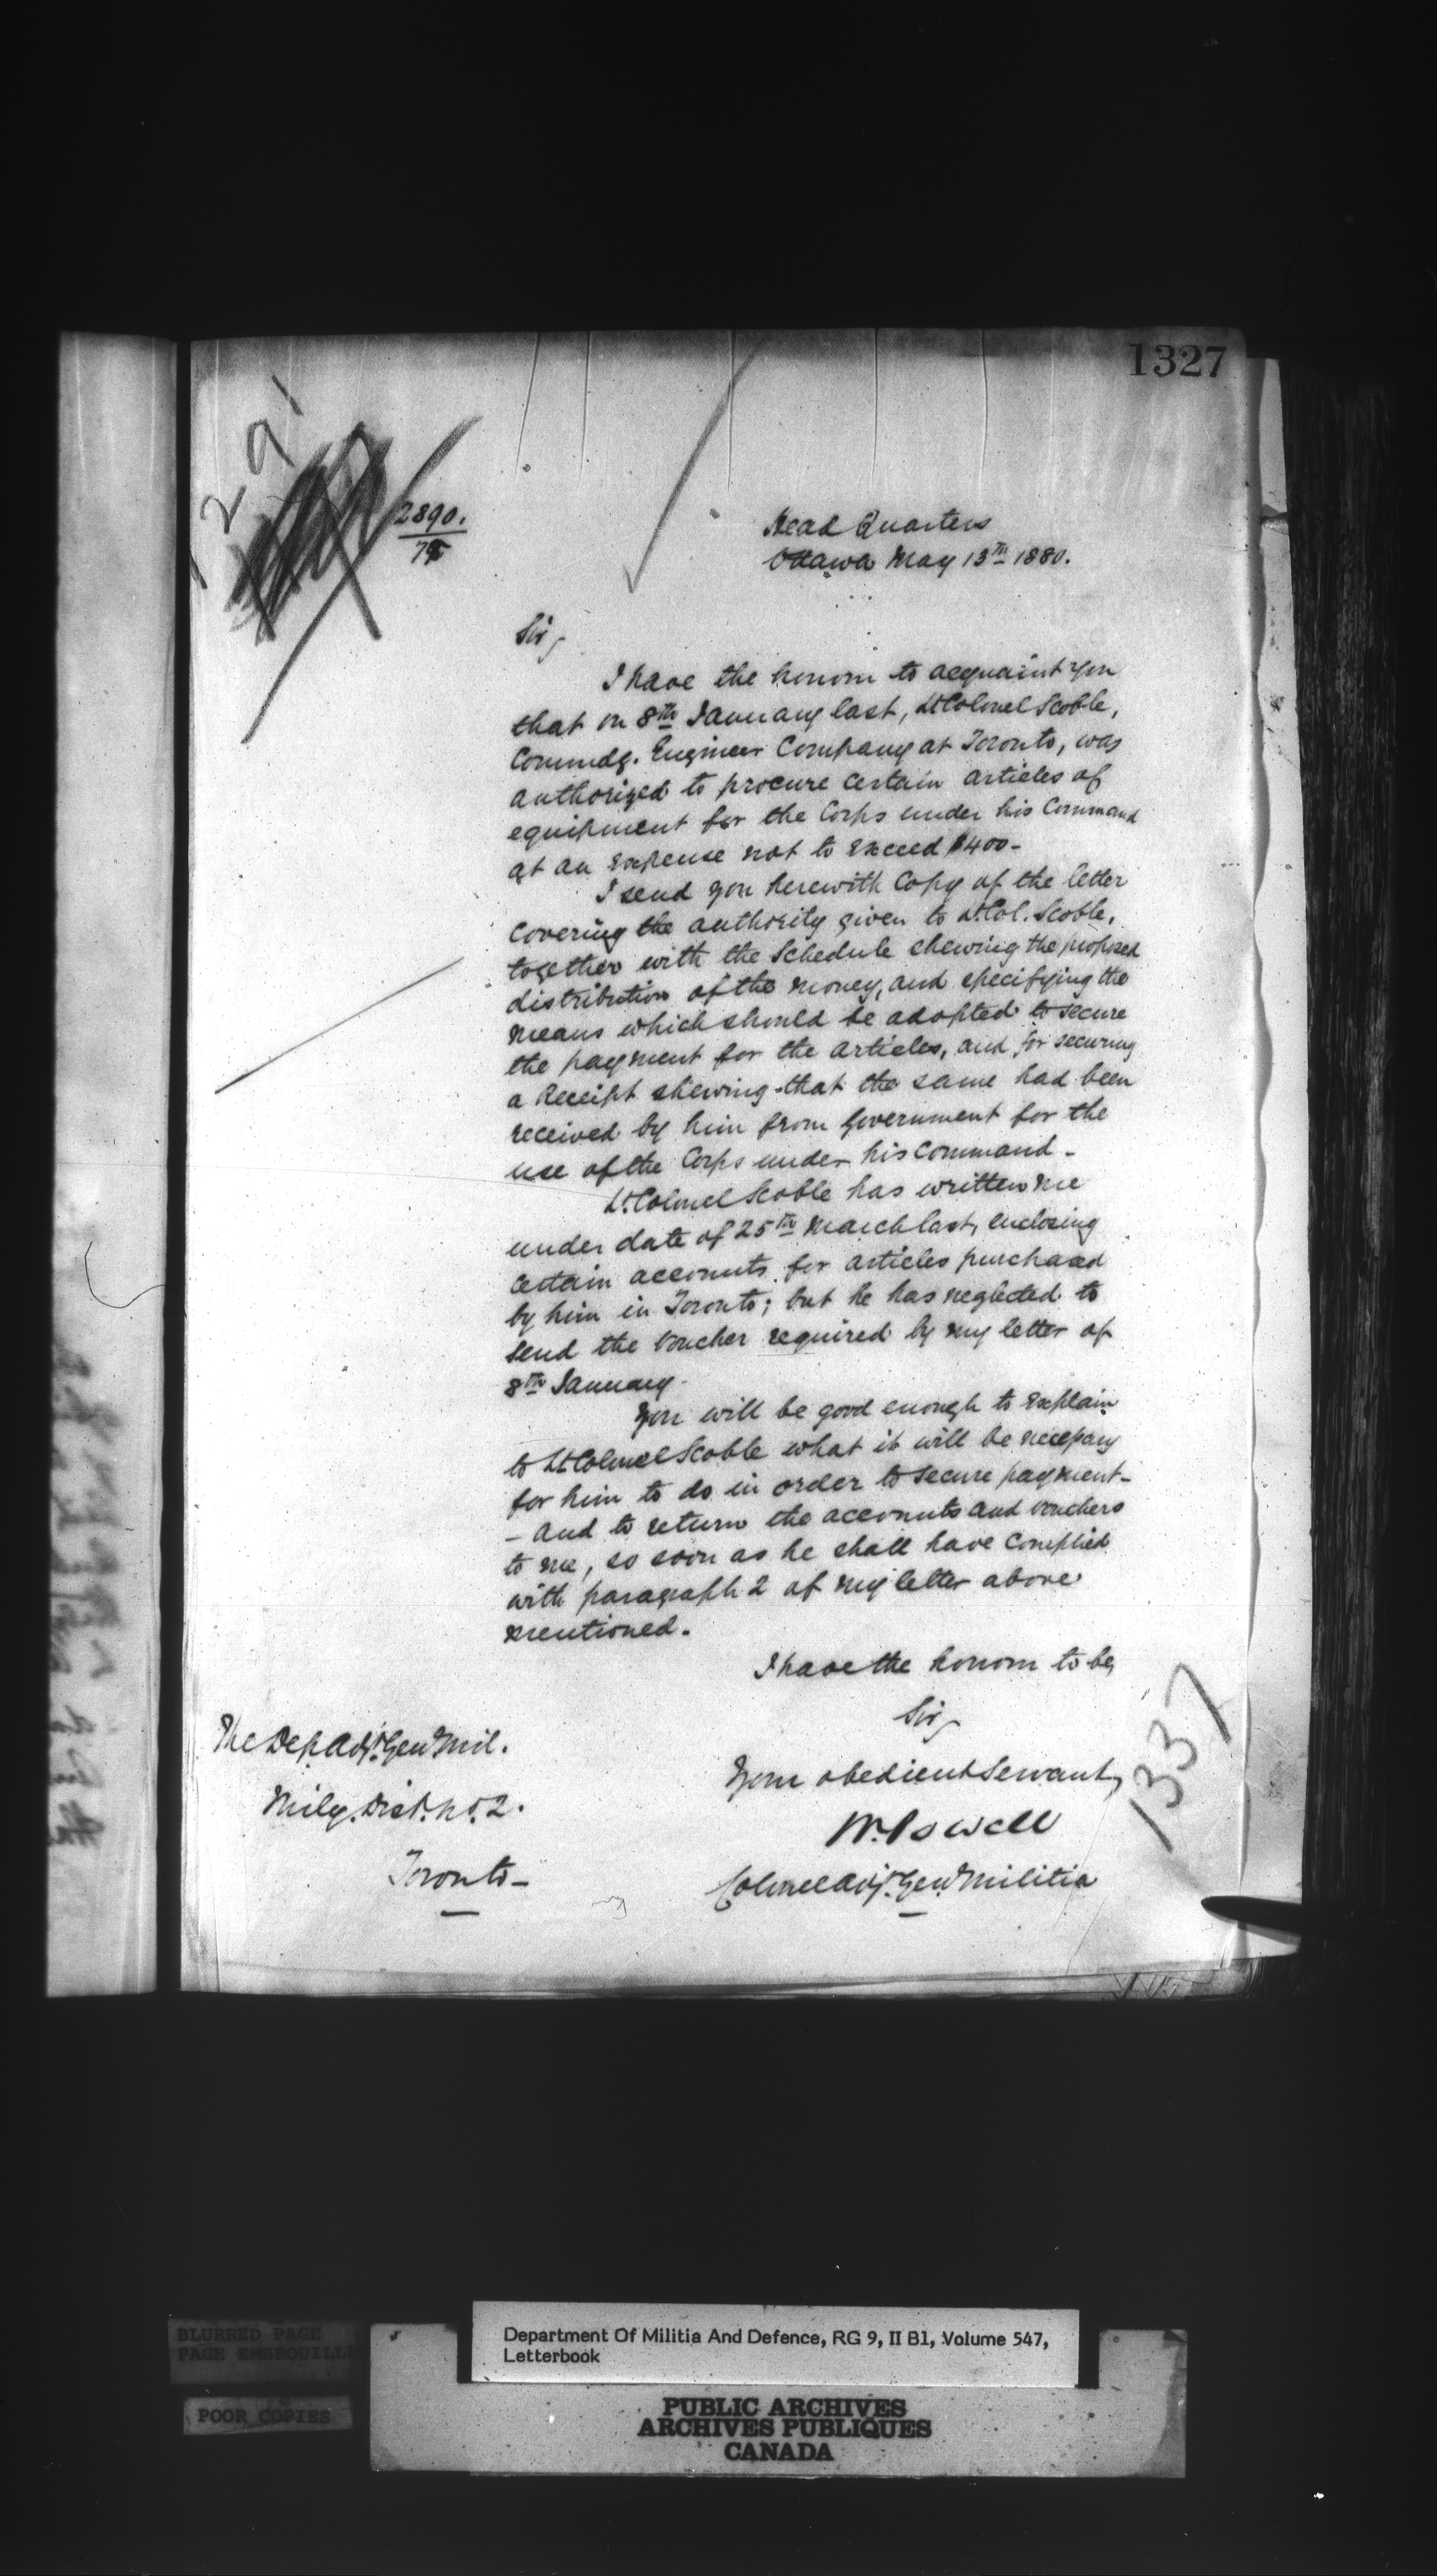 1327
1291
2890.
Head Quarters
Ottawa May 13th 1880.
Sir,
I have the honour to acquaint you
that on 8th January last, Lt Colonel Scoble,
Commdg. Engineer Company at Toronto, was
authorized to procure certain articles of
equipment for the Corps under his Command
at an expense not to exceed $400-
I send you herewith Copy of the letter
covering the authority given to Lt Col. Scoble,
together with the Schedule shewing the proposed
distribution of the money, and specifying the
means which should be adopted to secure
the payment for the articles, and for securing
a Receipt shewing that the same had been
received by him from Government for the
use of the Corps under his command -
Lt. Colonel Scoble has written me
under date of 25th March last, enclosing
certain accounts for articles purchased
by him in Toronto; but he has neglected to
send the voucher required by my letter of
8th January-
You will be good enough to explain
to Lt Colonel Scoble what it will be necessary
for him to do in order to secure payment-
- and to return the accounts and vouchers
to me, so soon as he shall have complied
with paragraph 2 of my letter above
mentioned.
I have the honour to be,
Sir,
Your obedient Servant,
W. Powell
Colonel Adjt. Genl. Militia
The Dep Adjt. Genl Mil.
Mily. Dist. No. 2.
Toronto-
1337
BLURRED PAGE
PAGE EMBROUILLÉ
POOR COPIES
Department Of Militia And Defence, RG 9, II B1, Volume 547,
Letterbook
PUBLIC ARCHIVES
ARCHIVES PUBLIQUES
CANADA